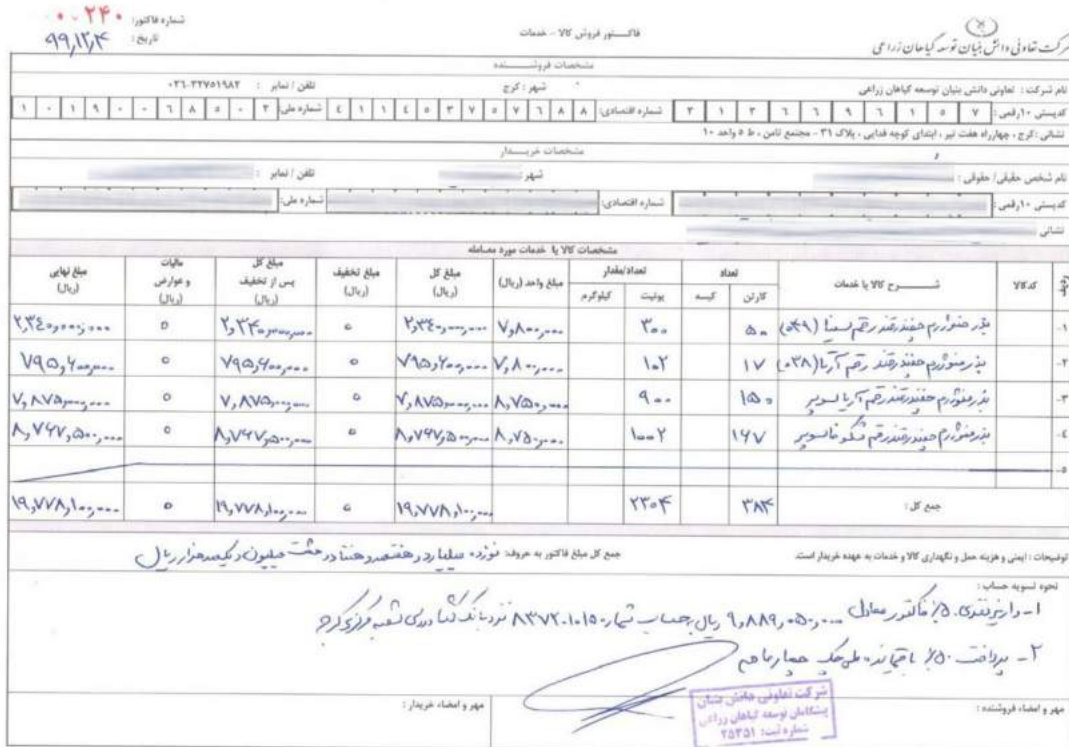 شماره فاکتور: ۰۰۲۴۰
فاکتور فروش کالا - خدمات
تاریخ: ۹۹,۱۲,۴
شرکت تعاونی دانش بنیان توسعه گیاهان زراعی
مشخصات فروشنده
نام شرکت : تعاونی دانش بنیان توسعه گیاهان زراعی شهر : کرج تلفن / نمابر : ۰۲۶-۳۲۷۵۱۹۸۲
کدپستی ۱۰رقمی: ۳ ۱ ۳ ۶ ۶ ۹ ۶ ۱ ۵ ۷ شماره اقتصادی: ۴ ۱ ۱ ۴ ۵ ۳ ۷ ۵ ۷ ۶ ۸ ۸ شماره ملی: ۱ ۰ ۱ ۹ ۰ ۰ ۶ ۸ ۵ ۰ ۳
نشانی :کرج ، چهارراه هفت تیر ، ابتدای کوچه فدایی ، پلاک ۳۱ - مجتمع ثامن ، ط ۵ واحد ۱۰
مشخصات خریدار
نام شخص حقیقی/ حقوقی : شهر : تلفن / نمابر :
کدپستی ۱۰رقمی: شماره اقتصادی: شماره ملی:
نشانی
مشخصات کالا یا خدمات مورد معامله
ردیف کد کالا شرح کالا یا خدمات تعداد تعداد/مقدار مبلغ واحد (ریال) مبلغ کل (ریال) مبلغ تخفیف (ریال) مبلغ کل پس از تخفیف (ریال) مالیات و عوارض (ریال) مبلغ نهایی (ریال)
کارتن کیسه یونیت کیلوگرم
۱- بذر منوژرم چغندرقند رقم سینا (۰۴۹) ۵۰ ۳۰۰ ۷,۸۰۰,۰۰۰ ۲,۳۴۰,۰۰۰,۰۰۰ ۰ ۲,۳۴۰,۰۰۰,۰۰۰ ۰ ۲,۳۴۰,۰۰۰,۰۰۰
۲- بذر منوژرم چغندرقند رقم آریا (۰۳۸) ۱۷ ۱۰۲ ۷,۸۰۰,۰۰۰ ۷۹۵,۶۰۰,۰۰۰ ۰ ۷۹۵,۶۰۰,۰۰۰ ۰ ۷۹۵,۶۰۰,۰۰۰
۳- بذر منوژرم چغندرقند رقم آریا سوپر ۱۵۰ ۹۰۰ ۸,۷۵۰,۰۰۰ ۷,۸۷۵,۰۰۰,۰۰۰ ۰ ۷,۸۷۵,۰۰۰,۰۰۰ ۰ ۷,۸۷۵,۰۰۰,۰۰۰
۴- بذر منوژرم چغندرقند رقم شکوفا سوپر ۱۶۷ ۱۰۰۲ ۸,۷۵۰,۰۰۰ ۸,۷۶۷,۵۰۰,۰۰۰ ۰ ۸,۷۶۷,۵۰۰,۰۰۰ ۰ ۸,۷۶۷,۵۰۰,۰۰۰
۵-
جمع کل : ۳۸۴ ۲۳۰۴ ۱۹,۷۷۸,۱۰۰,۰۰۰ ۰ ۱۹,۷۷۸,۱۰۰,۰۰۰ ۰ ۱۹,۷۷۸,۱۰۰,۰۰۰
توضیحات : ایمنی و هزینه حمل و نگهداری کالا و خدمات به عهده خریدار است. جمع کل مبلغ فاکتور به حروف: نوزده میلیارد و هفتصد و هفتاد و هشت میلیون و یکصد هزار ریال
نحوه تسویه حساب :
۱- واریز نقدی ۵۰٪ فاکتور معادل ۹,۸۸۹,۰۵۰,۰۰۰ ریال بحساب شماره ۸۳۷۲۰۱۰۱۵ نزد بانک کشاورزی شعبه مرکزی کرج
۲- پرداخت ۵۰٪ باقیمانده طی چک چهارماهه
مهر و امضاء فروشنده : مهر و امضاء خریدار :
شرکت تعاونی دانش بنیان
پیشگامان توسعه گیاهان زراعی
شماره ثبت: ۲۵۳۵۱